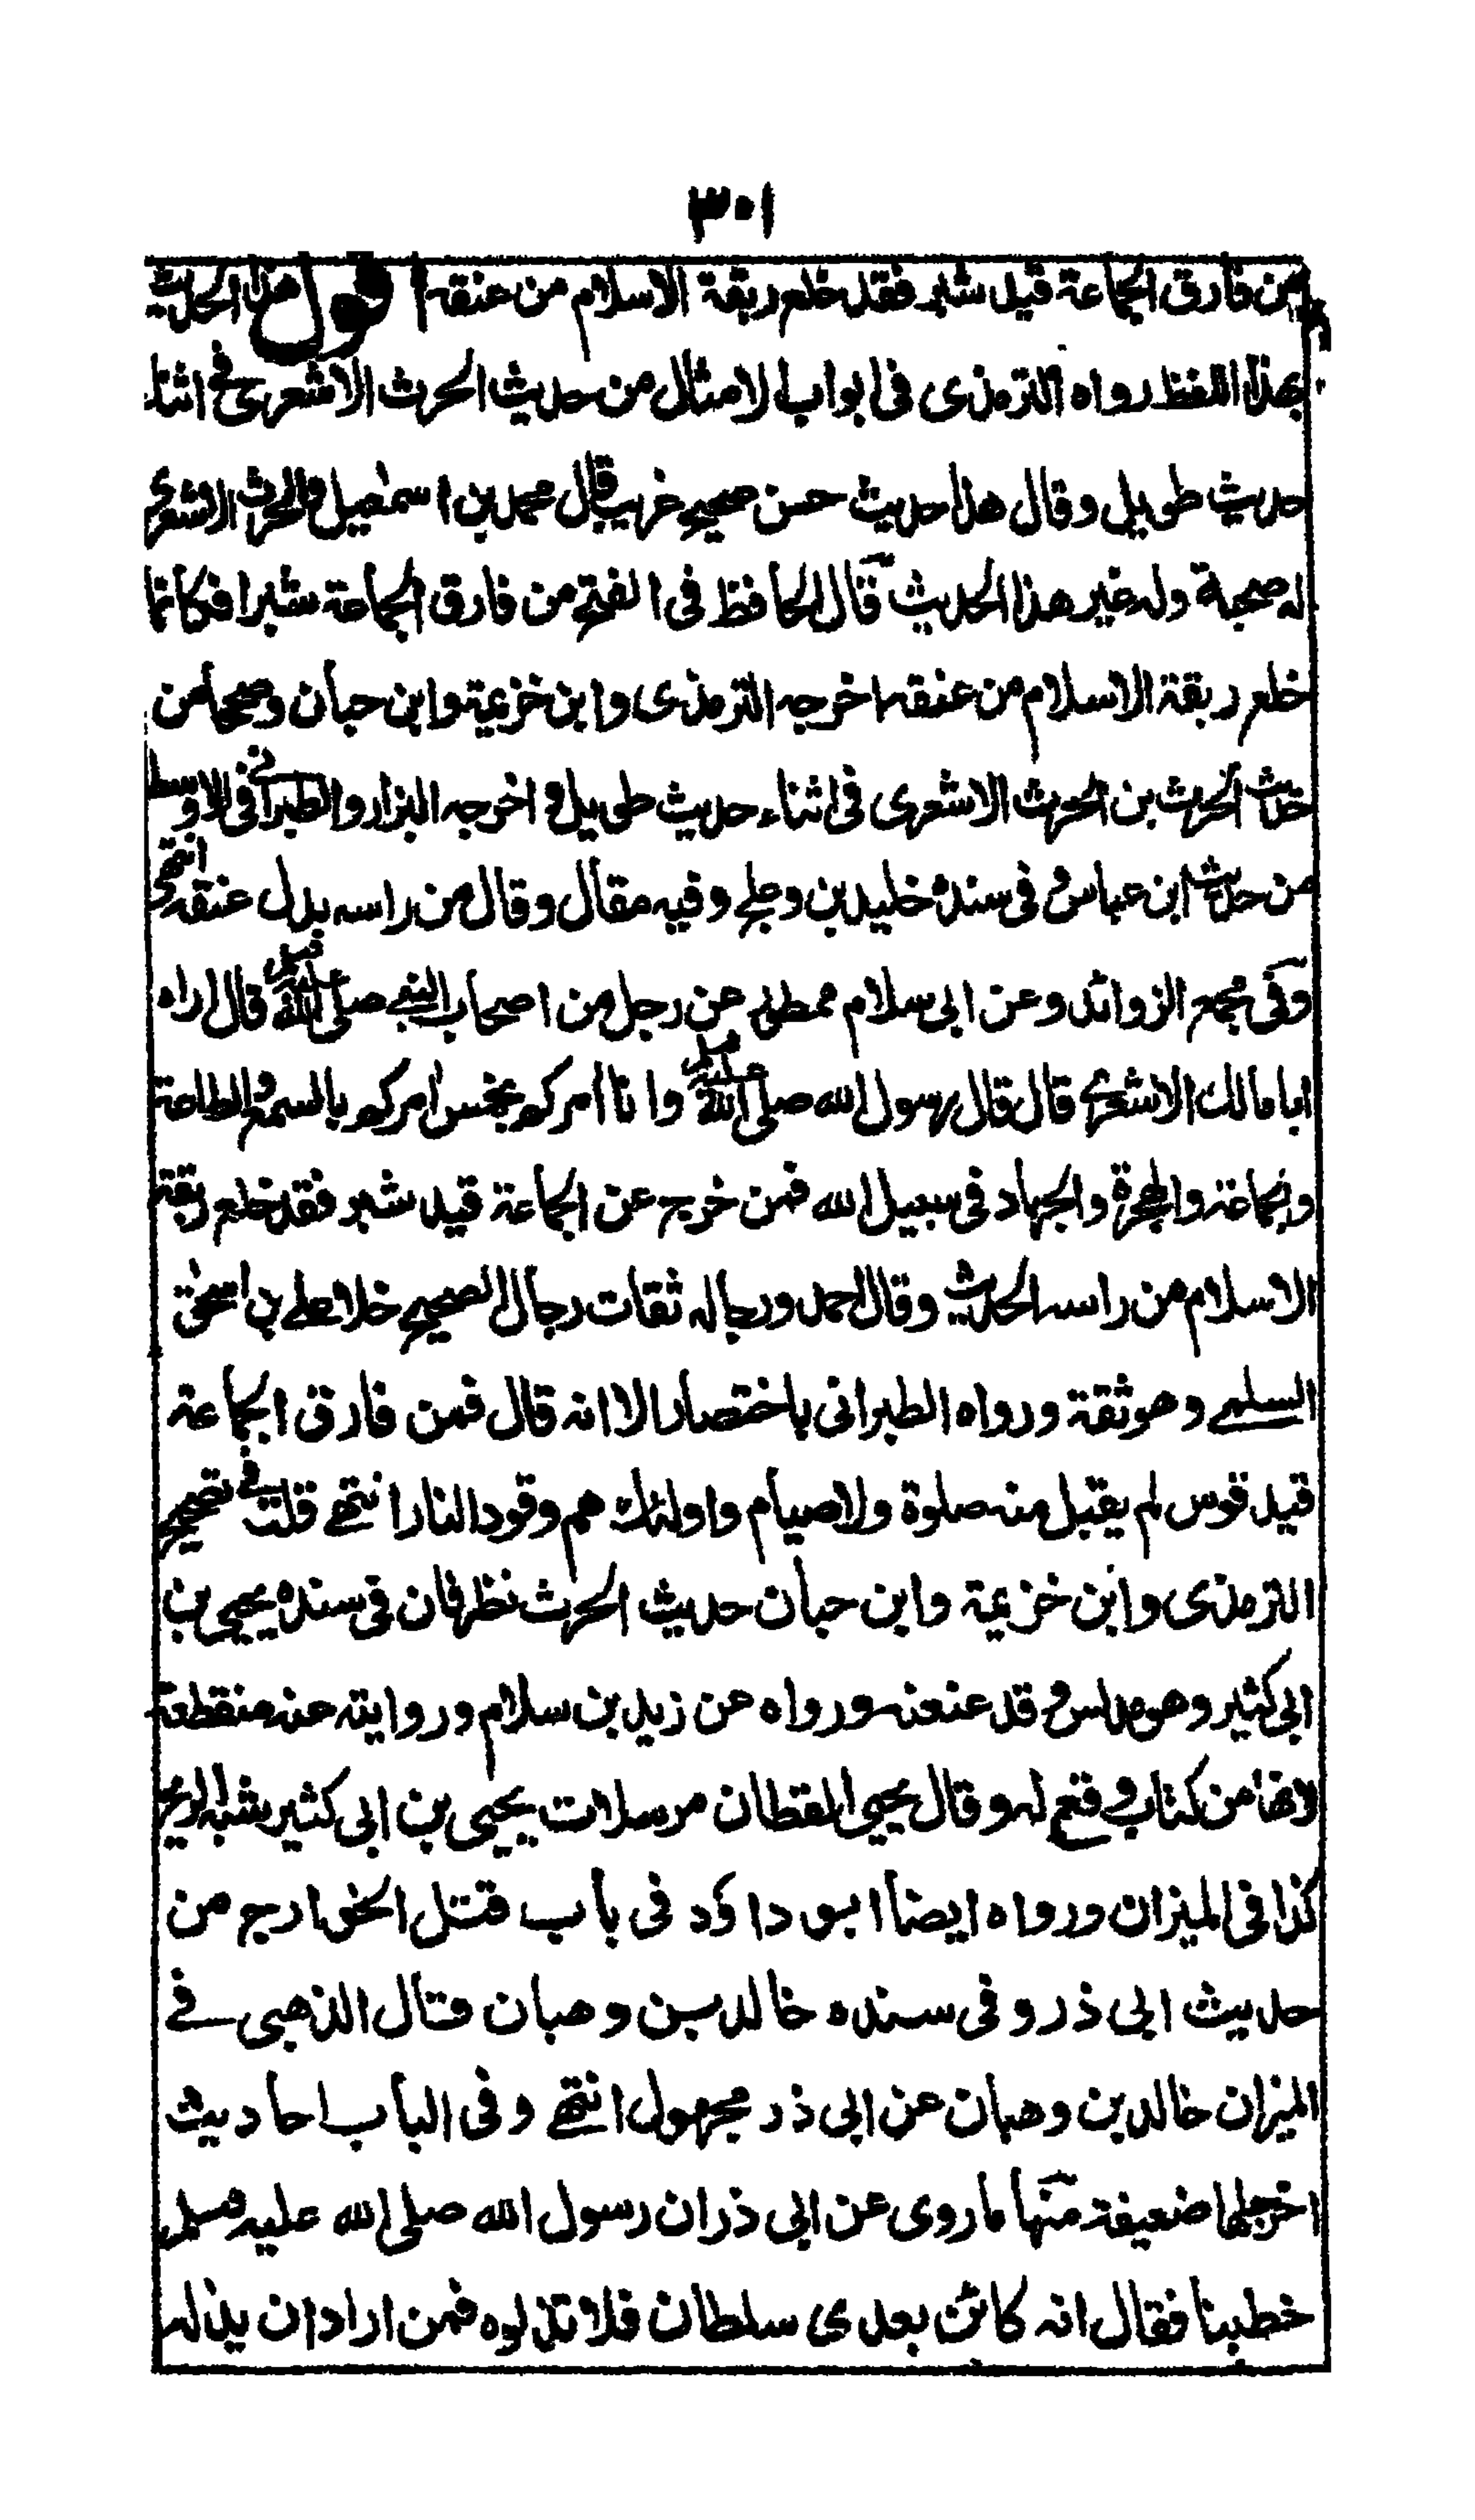 ٣٠١
من فارق الجماعة قيد شبر فقد خلع ربقة الاسلام من عنقه اقول هذا الحديث
بهذا اللفظ رواه الترمذى فى ابواب الامثال من حديث الحرث الاشعرى فى اثناء
حديث طويل وقال هذا حديث حسن صحيح غريب قال محمد بن اسمعيل الحرث الاشعرى
له صحبة وله غير هذا الحديث قال الحافظ فى الفتح من فارق الجماعة شبرا فكانما
خلع ربقة الاسلام من عنقه اخرجه الترمذى وابن خزيمة وابن حبان وصححا من
حديث الحرث بن الحرث الاشعرى فى اثناء حديث طويل واخرجه البزار والطبرانى فى الاوسط
من حديث ابن عباس وفى سنده خليد بن دعلج وفيه مقال وقال من راسه بدل عنقه انتهى
وفى مجمع الزوائد وعن ابى سلام ممطى عن رجل من اصحاب النبى صلى الله عليه وسلم قال اراه
ابا مالك الاشعرى قال قال رسول الله صلى الله عليه وسلم وانا امركم بخمس امركم بالسمع والطاعة
والجماعة والهجرة والجهاد فى سبيل الله فمن خرج عن الجماعة قيد شبر فقد خلع ربقة
الاسلام من راسه الحديث وقال احمد ورجاله ثقات رجال الصحيح خلا على بن اسحق
السلمى وهو ثقة ورواه الطبرانى باختصار الا انه قال فمن فارق الجماعة
قيد قوس لم يقبل منه صلوة ولا صيام واولئك هم وقود النار انتهى قلت فى تصحيح
الترمذى وابن خزيمة وابن حبان حديث الحرث نظر فان فى سنده يحيى بن
ابى كثير وهو مدلس وقد عنعنه ورواه عن زيد بن سلام وروايته عنه منقطعة
لانها من كتاب وقع له وقال يحيى القطان مرسلات يحيى بن ابى كثير شبه الريح
كذا فى الميزان ورواه ايضا ابو داؤد فى باب قتل الخوارج من
حديث ابى ذر وفى سنده خالد بن وهبان قال الذهبى فى
الميزان خالد بن وهبان عن ابى ذر مجهول انتهى وفى الباب احاديث
اخر جلها ضعيفة منها ما روى عن ابى ذر ان رسول الله صلى الله عليه وسلم
خطبنا فقال انه كائن بعدى سلطان فلا تذلوه فمن اراد ان يذله